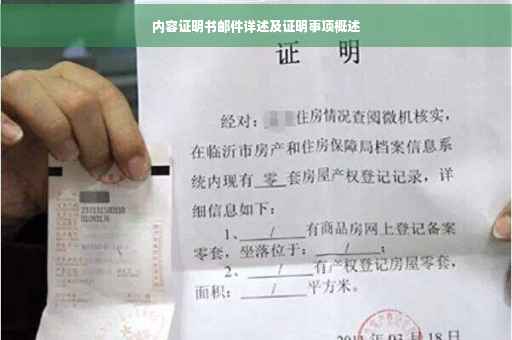 内容证明书邮件详述及证明事项概述
证 明
经对：住房情况查阅微机核实，
在临沂市房产和住房保障局档案信息系
统内现有 零 套房屋产权登记记录，详
细信息如下：
1、 / 有商品房网上登记备案
零套，坐落位于： / ；
2、 / 有产权登记房屋零套，
面积： / 平方米。
03月18日